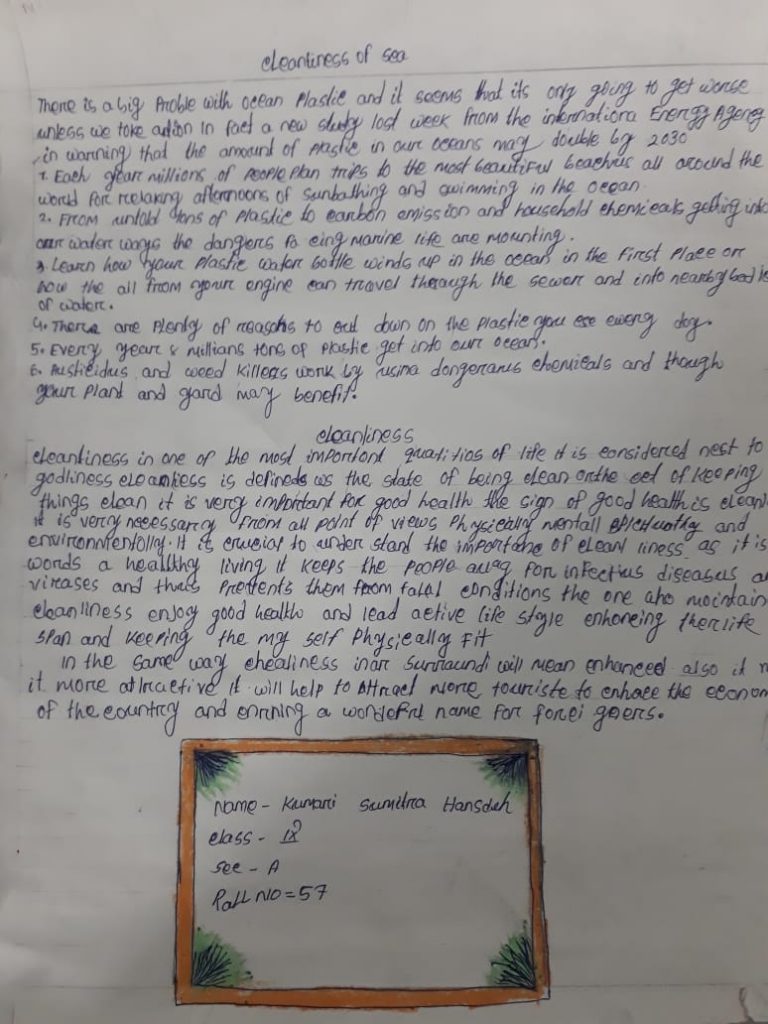 cleantiness of sea
There is a big Proble with ocean Plastic and it seems that its only going to get worse
unless we take action In fact a new study last week from the internationa Energy Agency
in warning that the amount of plastic in our oceans may double by 2030
1. Each year millions of people plan trips to the most beautiful beachus all around the
world for relaxing afternoons of sunbathing and swimming in the ocean.
2. From untold tons of plastic to carbon emission and household chemicals getting into
our water ways the dangers fa eing marine life are mounting.
3. Learn how your Plastic water bottle winds up in the ocean in the first place or
how the all from your engine can travel through the sewer and into nearby bodies
of water.
4. There are Plenty of reasons to cut down on the plastic you ese every day.
5. Every year 8 millians tons of plastic get into our ocean.
6. Pusticidus and weed killers work by using dangeraus chemicals and though
your plant and yard may benefit.
cleanliness
cleantiness in one of the most important qualitios of life it is considered nest to
godliness cleanliess is defineds as the state of being clean or the act of keeping
things clean it is very important for good health the sign of good health is clean
it is very necessary from all point of views Physically mentall and
environmentolly. It is crucial to under stand the importane of cleanl iness as it is
words a healthy living it keeps the people away for infectius diseasus a
virases and thus prevents them from fatal conditions the one who maintain
cleanliness enjoy good health and lead active life style enhancing their life
span and keeping the my self Physically Fit
in the same way cheanliness in our surraundi will mean enhanced also it
it more attractive it will help to attract more touriste to enhace the econom
of the country and enrning a wonderful name for forei geners.
Name - Kumari Sumitra Hansdah
class - IX
sec - A
Roll No = 57